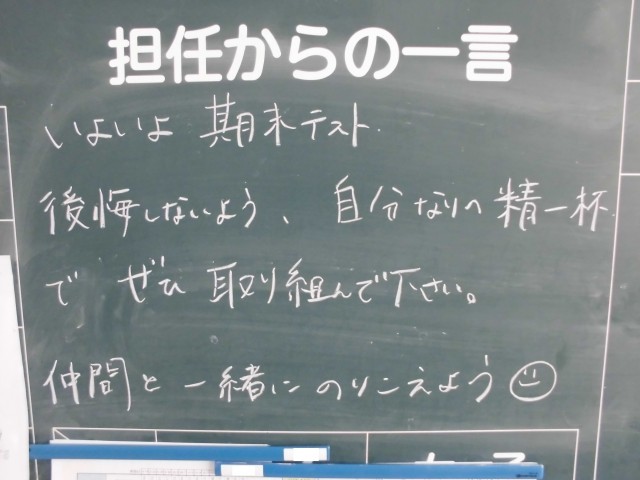 担任からの一言
いよいよ 期末テスト.
後悔しないよう、自分なりの精一杯
で ぜひ 取り組んで下さい。
仲間と一緒にのりこえよう